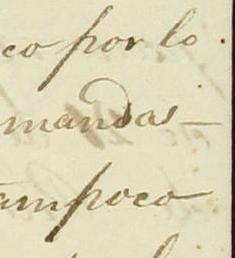 co por lo
mandas
tampoco